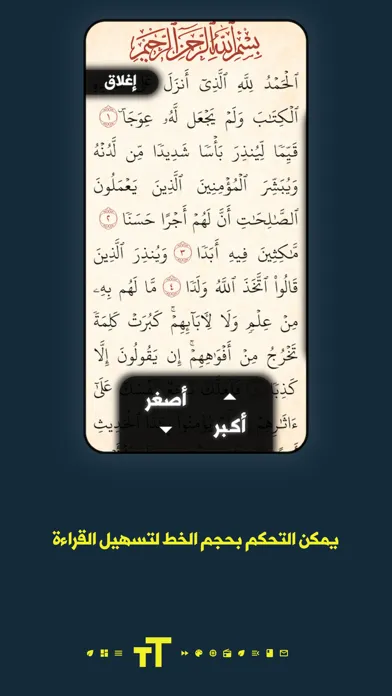 بِسْمِ ٱللَّهِ ٱلرَّحْمَٰنِ ٱلرَّحِيمِ
إغلاق
ٱلْحَمْدُ لِلَّهِ ٱلَّذِىٓ أَنزَلَ
ٱلْكِتَٰبَ وَلَمْ يَجْعَل لَّهُۥ عِوَجَاۜ ١
قَيِّمًا لِّيُنذِرَ بَأْسًا شَدِيدًا مِّن لَّدُنْهُ
وَيُبَشِّرَ ٱلْمُؤْمِنِينَ ٱلَّذِينَ يَعْمَلُونَ
ٱلصَّٰلِحَٰتِ أَنَّ لَهُمْ أَجْرًا حَسَنًا
٢ مَّٰكِثِينَ فِيهِ أَبَدًا ٣ وَيُنذِرَ ٱلَّذِينَ
قَالُوا۟ ٱتَّخَذَ ٱللَّهُ وَلَدًا ٤ مَّا لَهُم بِهِۦ
مِنْ عِلْمٍ وَلَا لِءَابَآئِهِمْ ۚ كَبُرَتْ كَلِمَةً
تَخْرُجُ مِنْ أَفْوَٰهِهِمْ ۚ إِن يَقُولُونَ إِلَّا
ءَاثَٰرِهِمْ
ٱلْحَدِيثِ
أصغر
أكبر
يمكن التحكم بحجم الخط لتسهيل القراءة
TT